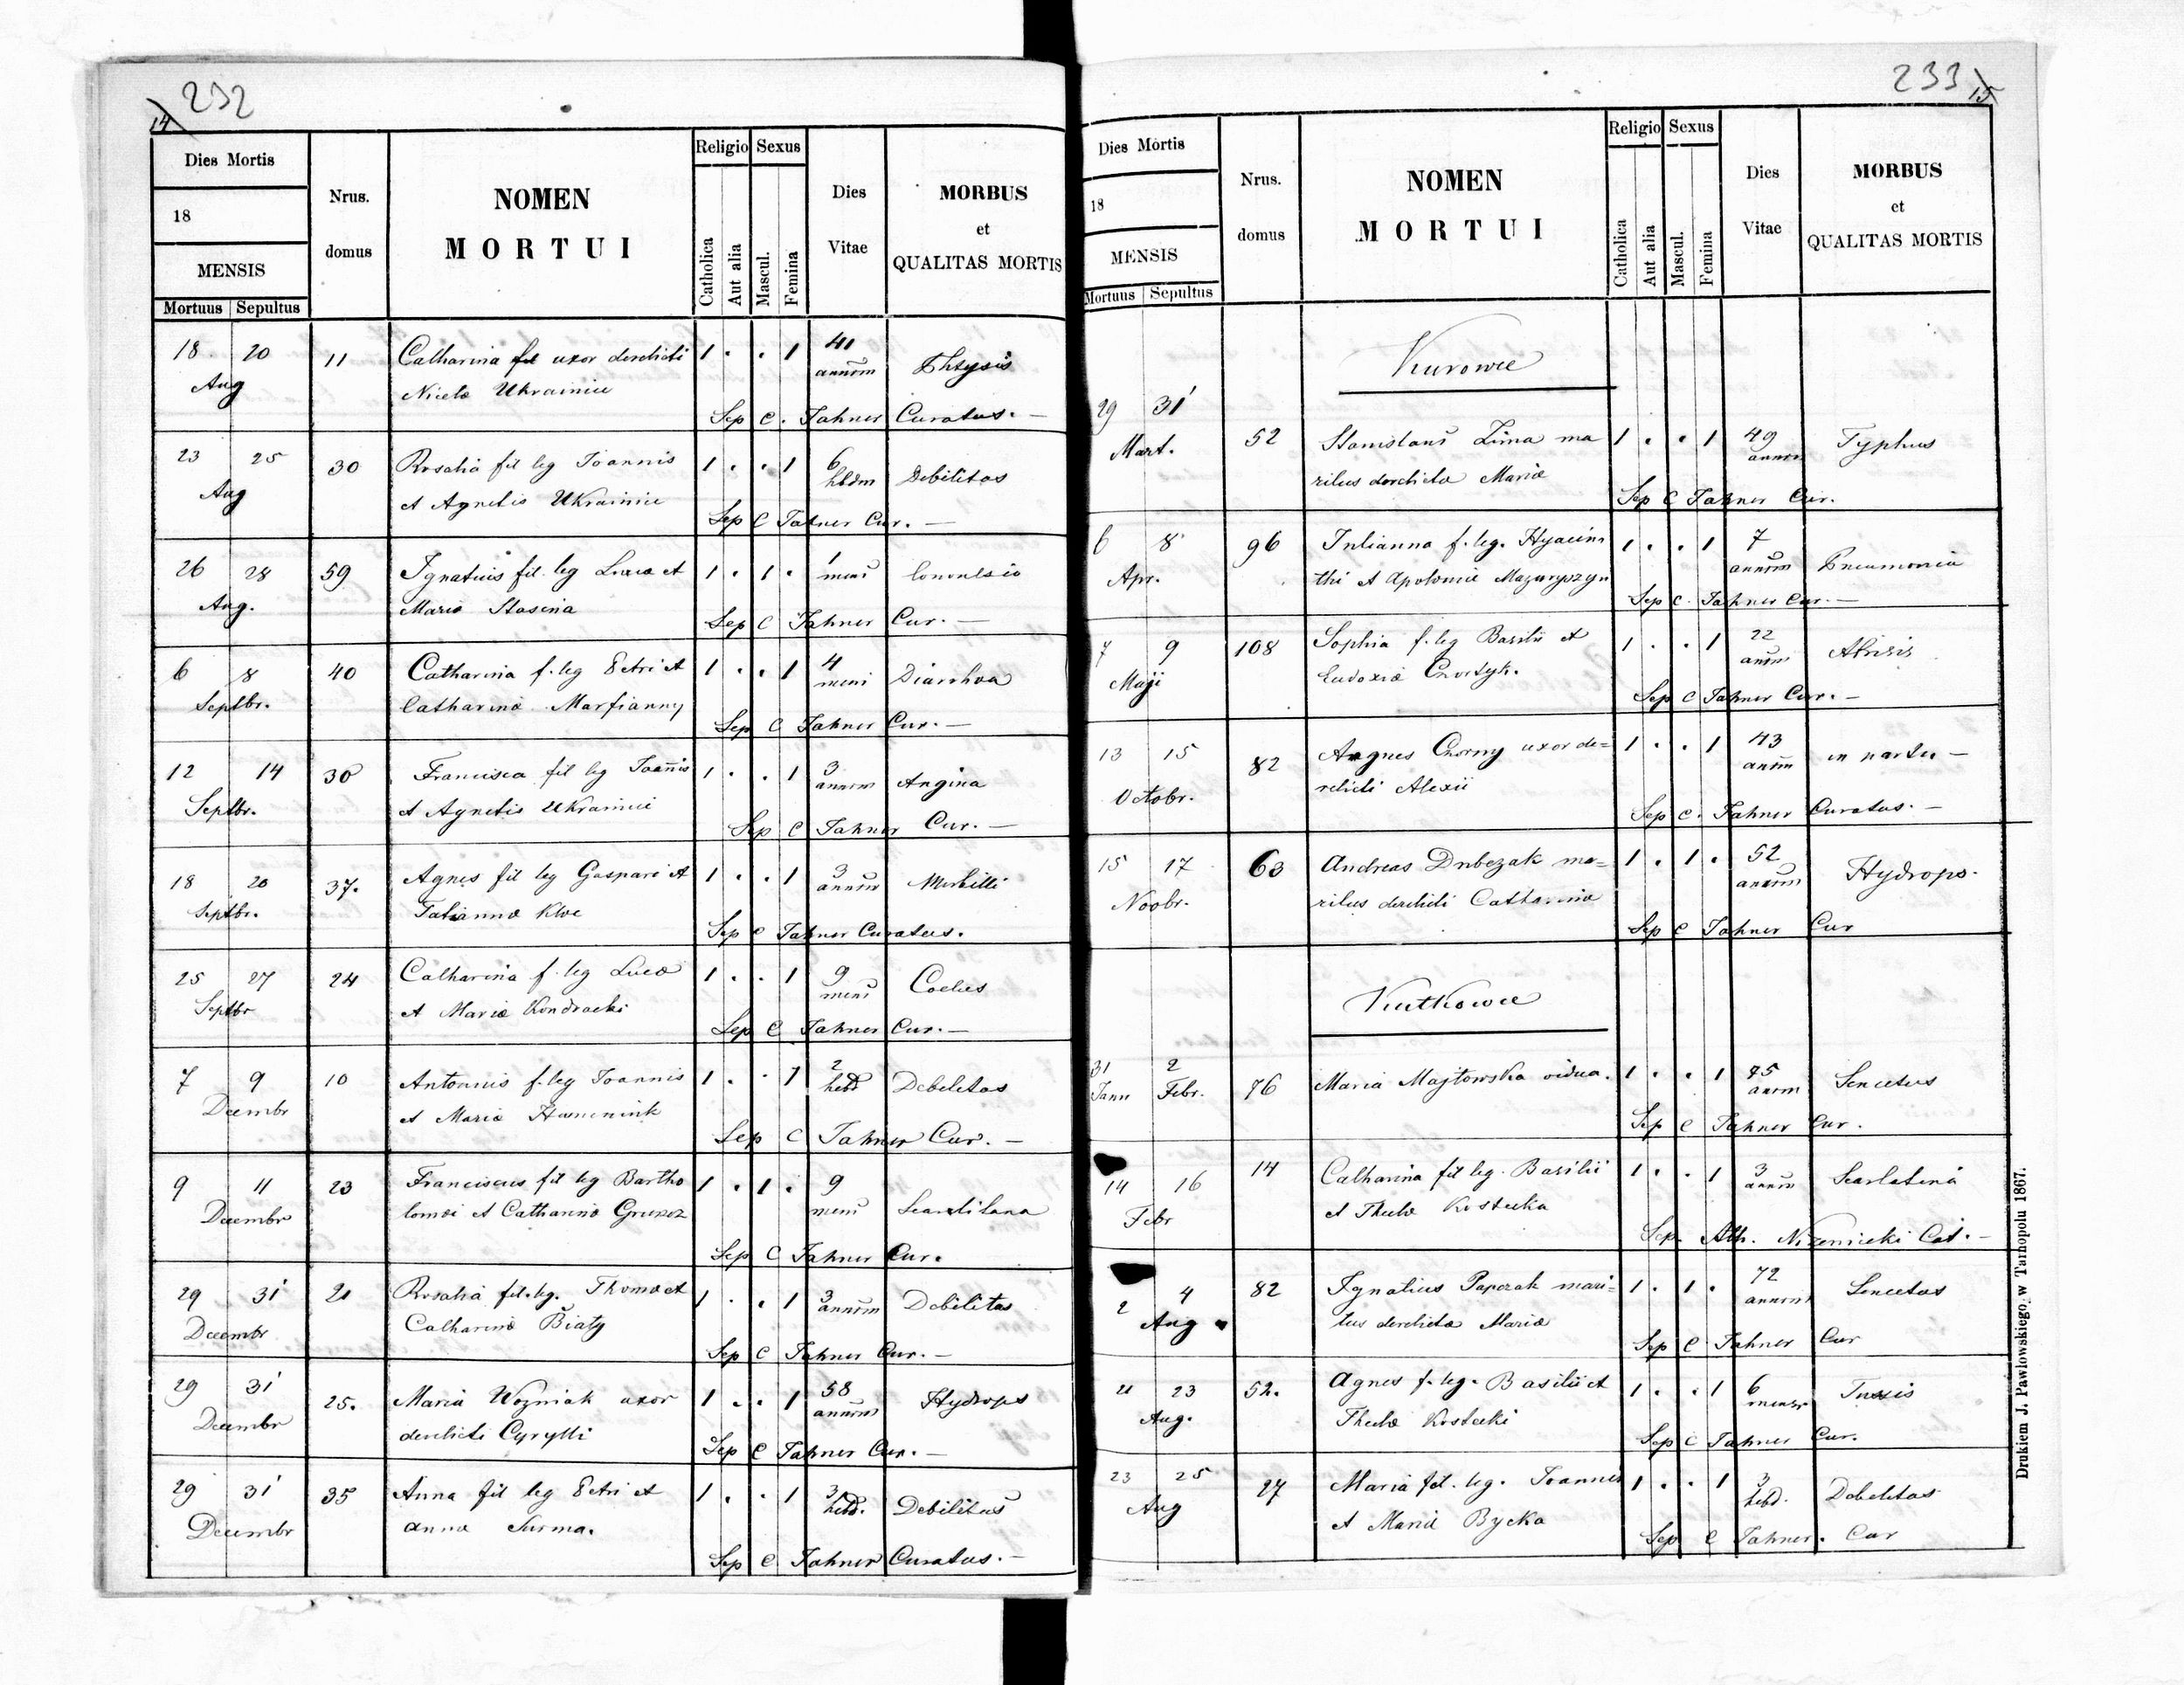 14 232
Dies Mortis
18
MENSIS
Mortuus Sepultus
Nrus.
domus
NOMEN
MORTUI
Religio Sexus
Catholica
Aut alia
Mascul.
Femina
Dies
Vitae
MORBUS
et
QUALITAS MORTIS
18 20 11 Catharina fil uxor derelicti 1 . . 1 41 Phtysis
Aug Ukrainiec annorm
Sep C. Tahner Curatus. —
23 25 30 Rosalia fil leg Joannis 1 . . 1 6 Debilitas
Aug et Agnetis Ukrainiec hbdm
Sep C Tahner Cur. —
26 28 59 Ignatius fil. leg Lucæ et 1 . 1 . 1 Convulsio
Aug. Mariæ Stasina mens
Sep C Tahner Cur. —
6 8 40 Catharina f. leg Petri et 1 . . 1 4 Diarrhoa
Septbr. Catharinæ Marfianny mens
Sep C Tahner Cur. —
12 14 30 Francisca fil leg Joannis 1 . . 1 3 Angina
Septbr. et Agnetis Ukrainiec annorm
Sep C Tahner Cur. —
18 20 37. Agnes fil leg Gaspari et 1 . . 1 3 Morbilli
Septbr. Tatiannæ annorm
Sep C Tahner Curatus.
25 27 24 Catharina f. leg Lucæ 1 . . 1 9
Septbr et Mariæ Kondracki mens
Sep C Tahner Cur. —
7 9 10 Antonius f. leg Joannis 1 . . 1 2 Debilitas
Decembr et Mariæ hebd
Sep C Tahner Cur. —
9 11 23 Franciscus fil leg Bartho 1 . 1 . 9
Decembr lomæi et Catharinæ mens
Sep C Tahner Cur.
29 31 21 Rosalia fil. leg. Thomæ et 1 . . 1 3 Debilitas
Decembr Catharinæ Biały annorm
Sep C Tahner Cur. —
29 31 25. Maria Wozniak uxor 1 . . 1 58 Hydrops
Decembr derelicti Cyrylli annorm
Sep C Tahner Cur. —
29 31 35 Anna fil leg Petri et 1 . . 1 3 Debilitas
Decembr Annæ Surma. hebd.
Sep C. Tahner Curatus. —
233 15
Dies Mortis
18
MENSIS
Mortuus Sepultus
Nrus.
domus
NOMEN
MORTUI
Religio Sexus
Catholica
Aut alia
Mascul.
Femina
Dies
Vitae
MORBUS
et
QUALITAS MORTIS
Kurowce
29 31 52 Stanislaus Zima ma 1 . . 1 49 Typhus
Mart. ritus derelictæ Mariæ annorm
Sep C Tahner Cur.
6 8 96 Julianna f. leg. Hyacin 1 . . 1 7 Pneumonia
Apr. thi et Apoloniæ Mazuryszyn annorm
Sep C. Tahner Cur. —
7 9 108 Sophia f. leg Basilii et 1 . . 1 22
Maji Eudoxiæ annrm
Sep C Tahner Cur. —
13 15 82 Agnes Czorny uxor de= 1 . . 1 43 in partu —
Octobr. relicti Alexii annrm
Sep C. Tahner Curatus. —
15 17 63 Andreas ma= 1 . 1 . 52 Hydrops.
Novbr. ritus derelicti Catharinæ annorm
Sep C Tahner Cur
Kutkowce
31 2 76 Maria Majtowska vidua. 1 . . 1 75 Senectus
Jann Febr. annrm
Sep C Tahner Cur.
14 16 14 Catharina fil leg. Basilii 1 . . 1 3 Scarlatina
Febr et Theclæ Kostecka annrm
Sep. Ath. Cat. —
2 4 82 Ignatius Papczak mari= 1 . 1 . 72 Senectus
Aug tus derelictæ Mariæ annorm
Sep C Tahner Cur
21 23 52. Agnes f. leg. Basilii et 1 . . 1 6 Tussis
Aug. Theclæ Kostecki mensr
Sep C Tahner Cur.
23 25 27 Maria fil. leg. Joannis 1 . . 1 3 Debilitas
Aug et Mariæ Bycka hebd.
Sep C Tahner. Cur
Drukiem J. Pawłowskiego w Tarnopolu 1867.